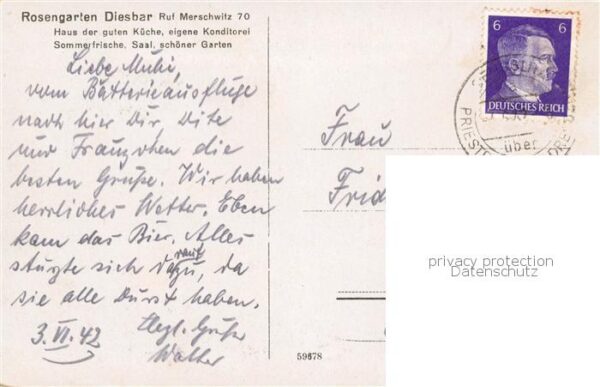 Rosengarten Diesbar Ruf Merschwitz 70
Haus der guten Küche, eigene Konditorei
Sommerfrische, Saal, schöner Garten
Liebe Muhi,
vom Batterieausfluge
nach hier Dir, Dite
und Franzchen die
besten Grüße. Wir haben
herrliches Wetter. Eben
kam das Bier. Alles
stürzte sich darauf, da
sie alle Durst haben.
3. VI. 42 Herzl. Grüße
Walter
6 6
DEUTSCHES REICH
über
Frau
Frid
privacy protection
Datenschutz
59678